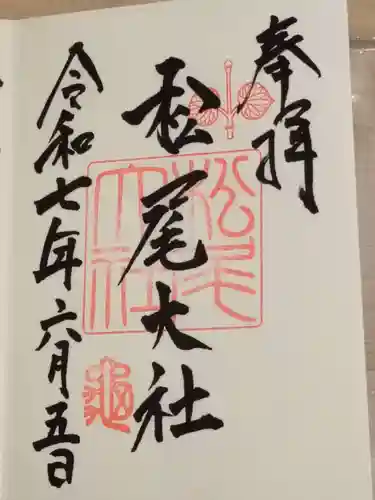 奉拝
松尾大社
令和七年六月五日
松尾
大社
亀